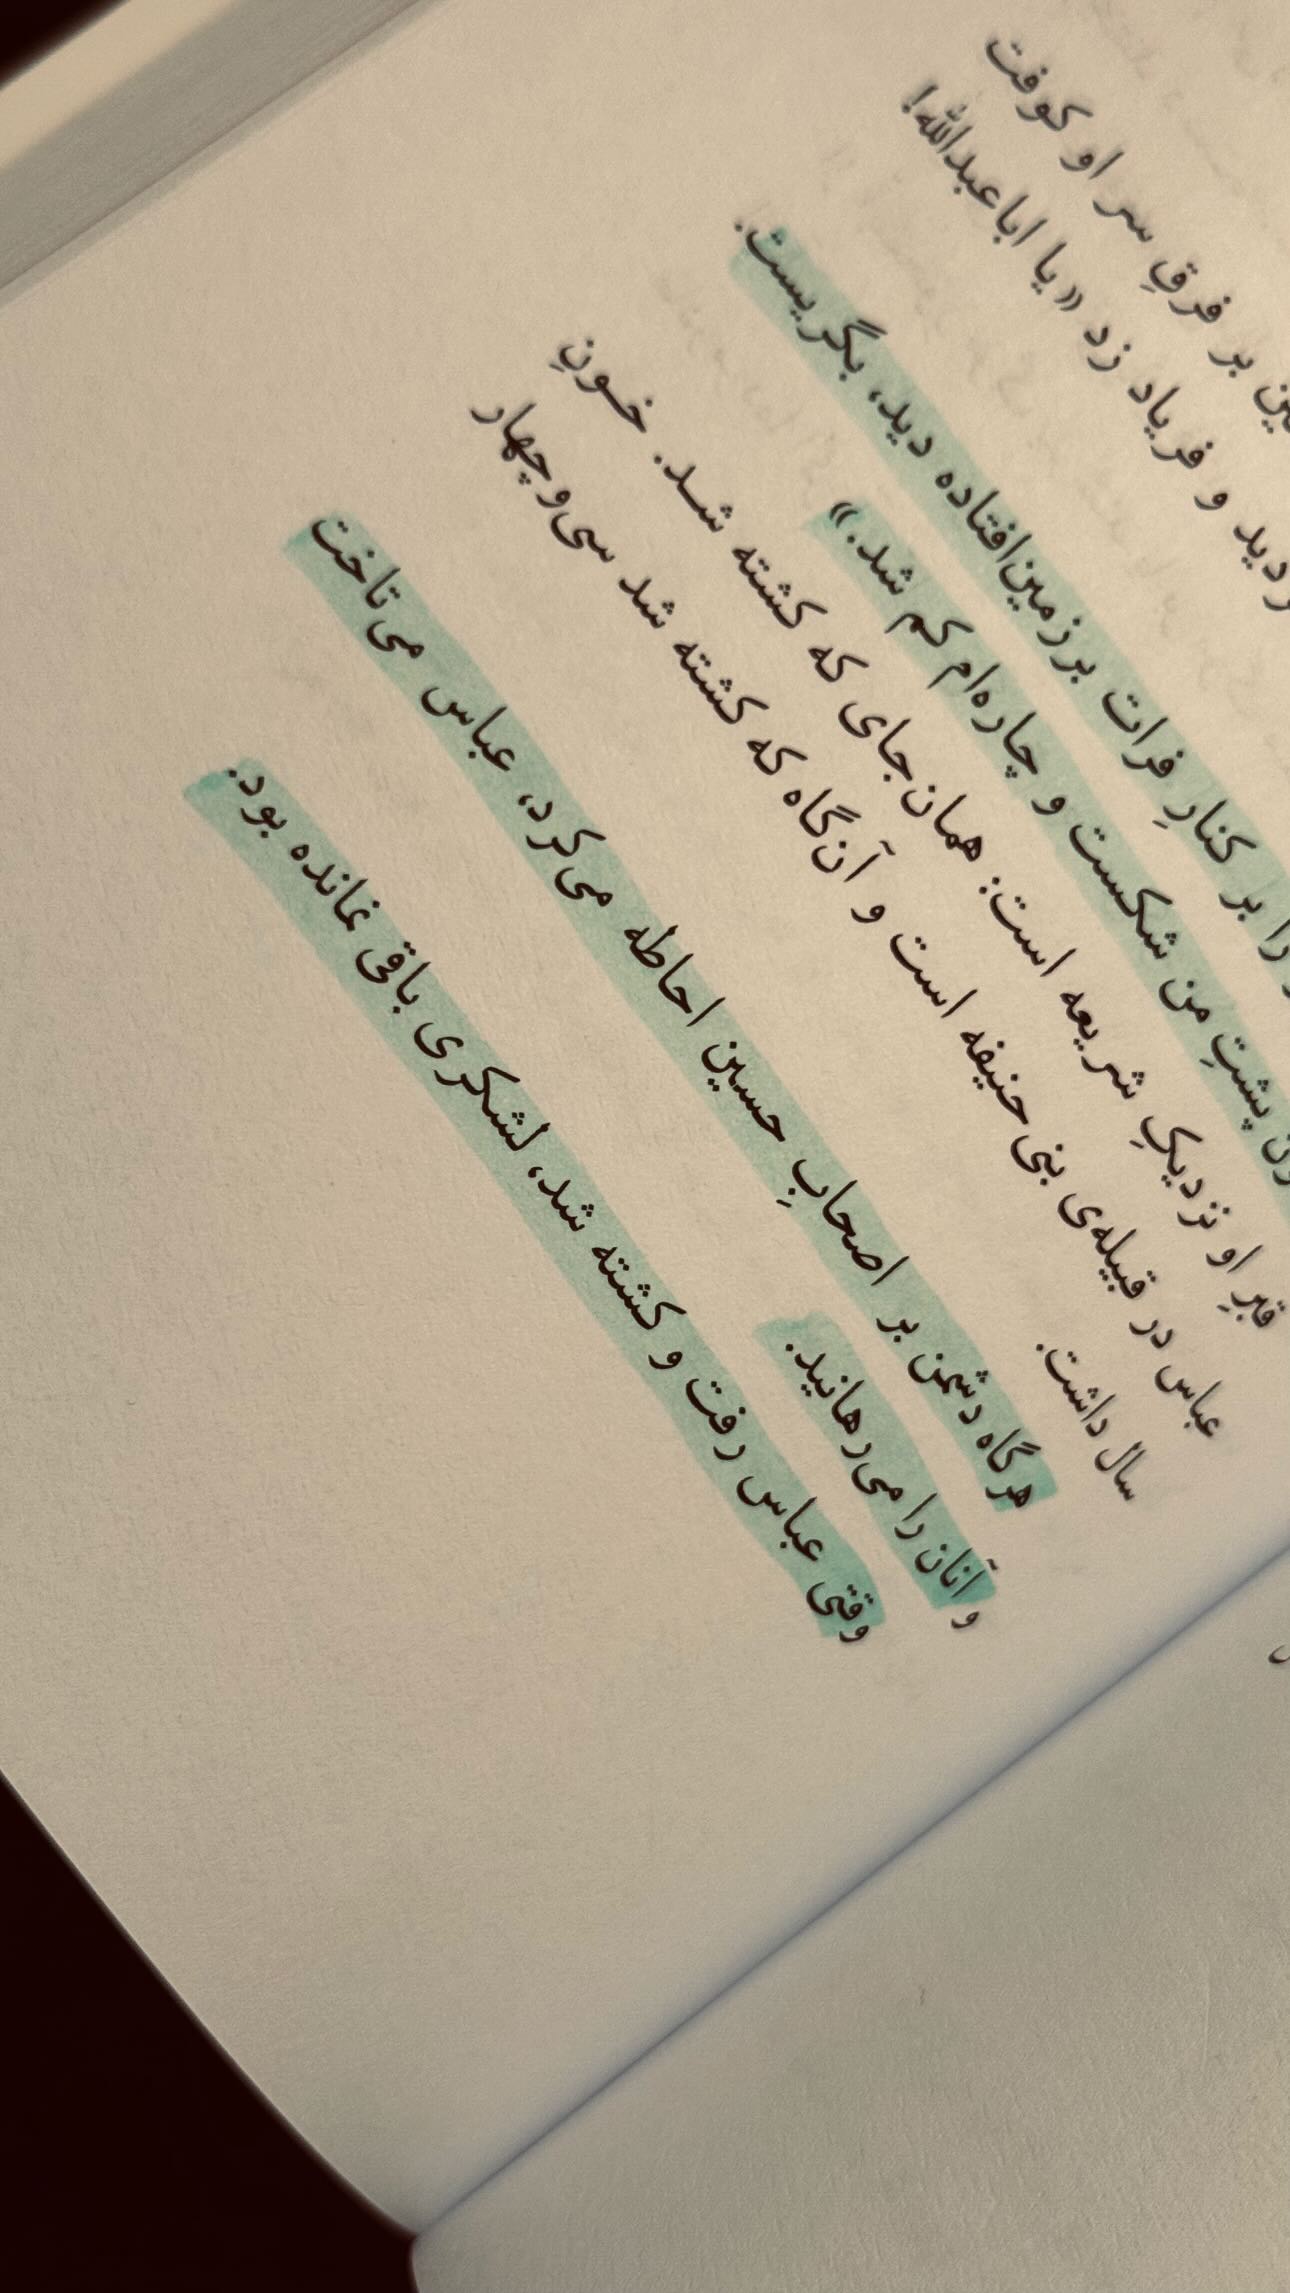 بر فرقِ سر او کوفت
و فریاد زد «یا اباعبدالله!
را بر کنارِ فرات بر زمین‌افتاده دید، بگریست.
پشتِ من شکست و چاره‌ام کم شد.»
قبرِ او نزدیکِ شریعه است: همان‌جای که کشته شد. خونِ
عباس در قبیله‌ی بنی‌حنیفه است و آن‌گاه که کشته شد سی‌وچهار
سال داشت.
هرگاه دشمن بر اصحابِ حسین احاطه می‌کرد، عباس می‌تاخت
و آنان را می‌رهانید.
وقتی عباس رفت و کشته شد، لشکری باقی نمانده بود.